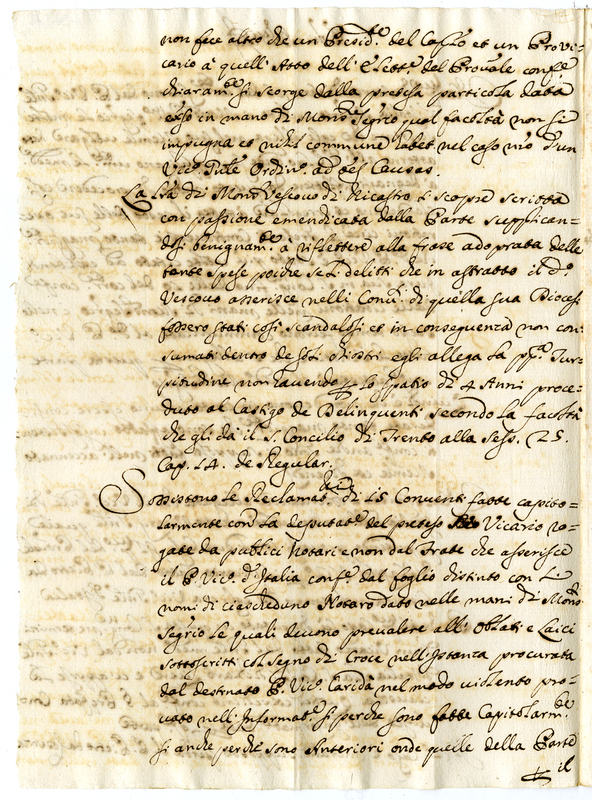 non fece altro che un Presid.te del Cap.lo et un Provi=
cario à quell'Atto dell'Elett.e del Prov.ale conf.e
chiaram.te si scorge dalla pretesa particola data
esso in mano di Mons.r Seg.rio qual facoltà non si
impugna et nihil commune habet nel caso n'ro d'un
Vic.o G'nle Ordin.o ad o'es Causas.
La L'ra di Mons.r Vescovo di Nicastro si scopre scritta
con passione emendicata dalla Parte supplican=
dosi benignam.te à riflettere alla frase adoprata delle
tante spese poiche se li delitti che in astratto il d.o
Vescovo asserisce nelli Conv.ti di quella sua Diocesi
fossero stati così scandalosi et in conseguenza non con=
sumati dentro de soli chiostri egli allega la pp.a Tur=
pitudine non havendo p lo spatio di 4 Anni proce=
duto al Castigo de Delinquenti secondo la facoltà
che gli dà il S. Concilio di Trento alla Sess. 25.
Cap. 14. de Regular.
Sossistono le Reclamat.ni di 15 Conventi fatte capito=
larmente con la deputat.e del preteso Vicario ro=
gate da publici Notari e non dal Frate che asserisce
il P. Vic.o d'Italia conf.e dal foglio distinto con li
nomi di ciascheduno Notaro dato nelle mani di Mons.r
Seg.rio le quali devono prevalere all'Oblati e Laici
sottoscritti col segno di Croce nell'Istanza procurata
dal destinato P. Vic.o Caridà nel modo violento pro=
vato nell'Informat.e si perche sono fatte Capitolarm.te
si anche perche sono Anteriori onde quelle della Parte
il